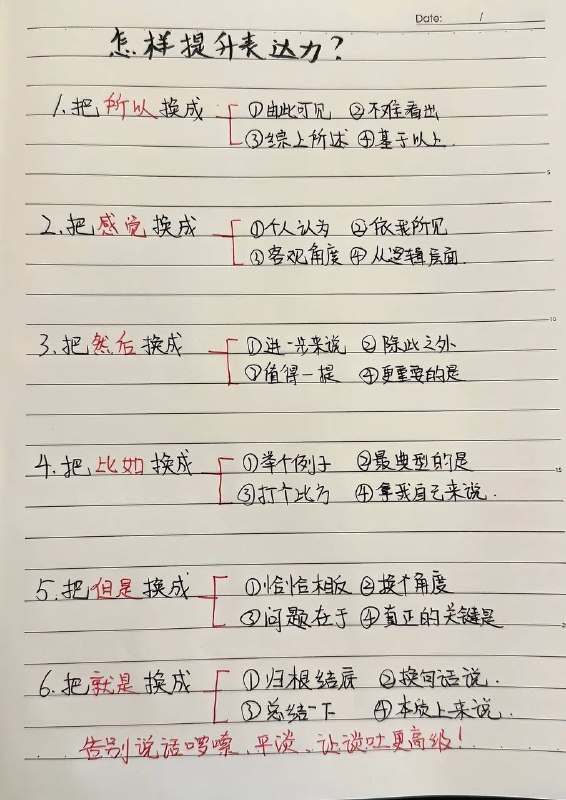 Date: /
怎样提升表达力?
1.把所以换成 ①由此可见 ②不难看出
③综上所述 ④基于以上.
5
2.把感觉换成 ①个人认为 ②依我所见
③客观角度 ④从逻辑层面.
10
3.把然后换成 ①进一步来说 ②除此之外
③值得一提 ④更重要的是
4.把比如换成 ①举个例子 ②最典型的是
15
③打个比方 ④拿我自己来说.
5.把但是换成 ①恰恰相反 ②换个角度
③问题在于 ④真正的关键是
6.把就是换成 ①归根结底 ②换句话说.
③总结一下 ④本质上来说.
告别说话啰嗦、平淡、让谈吐更高级!